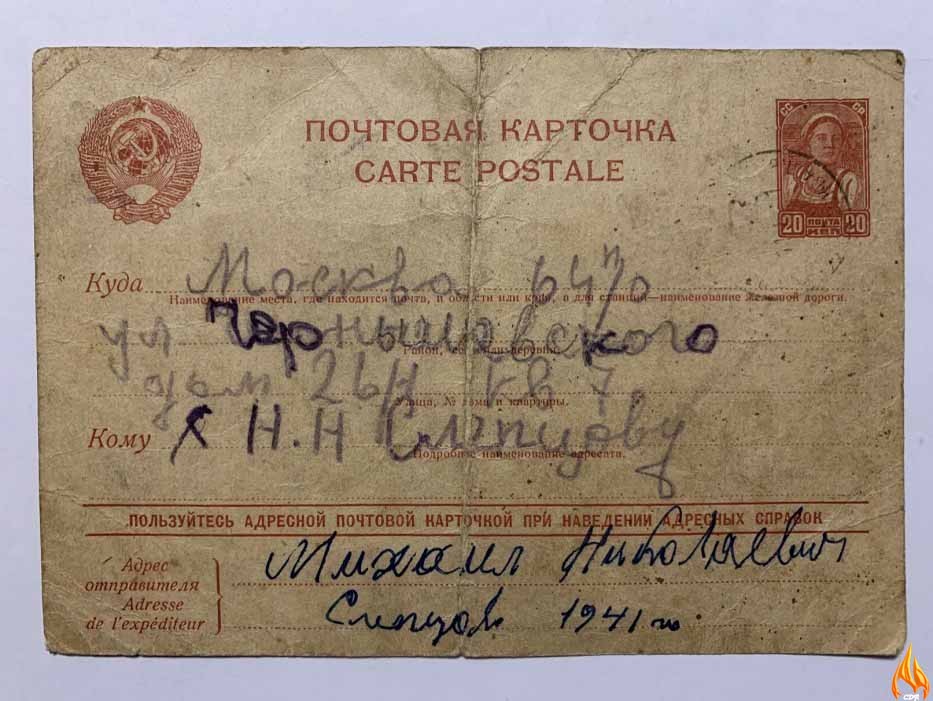 ПОЧТОВАЯ КАРТОЧКА
CARTE POSTALE
СС СР
20 ПОЧТА КОП 20
Куда Москва 64
Наименование места, где находится почта, и области или края, а для станций—наименование железной дороги.
ул Чернышовского
Район, село или деревня.
дом 26 кв 7.
Улица, № дома и квартиры.
Кому Н.Н Слепцову
Подробное наименование адресата.
ПОЛЬЗУЙТЕСЬ АДРЕСНОЙ ПОЧТОВОЙ КАРТОЧКОЙ ПРИ НАВЕДЕНИИ АДРЕСНЫХ СПРАВОК
Адрес
отправителя
Adresse
de l'expéditeur
Михаил Николаевич
Слепцов 1941 го